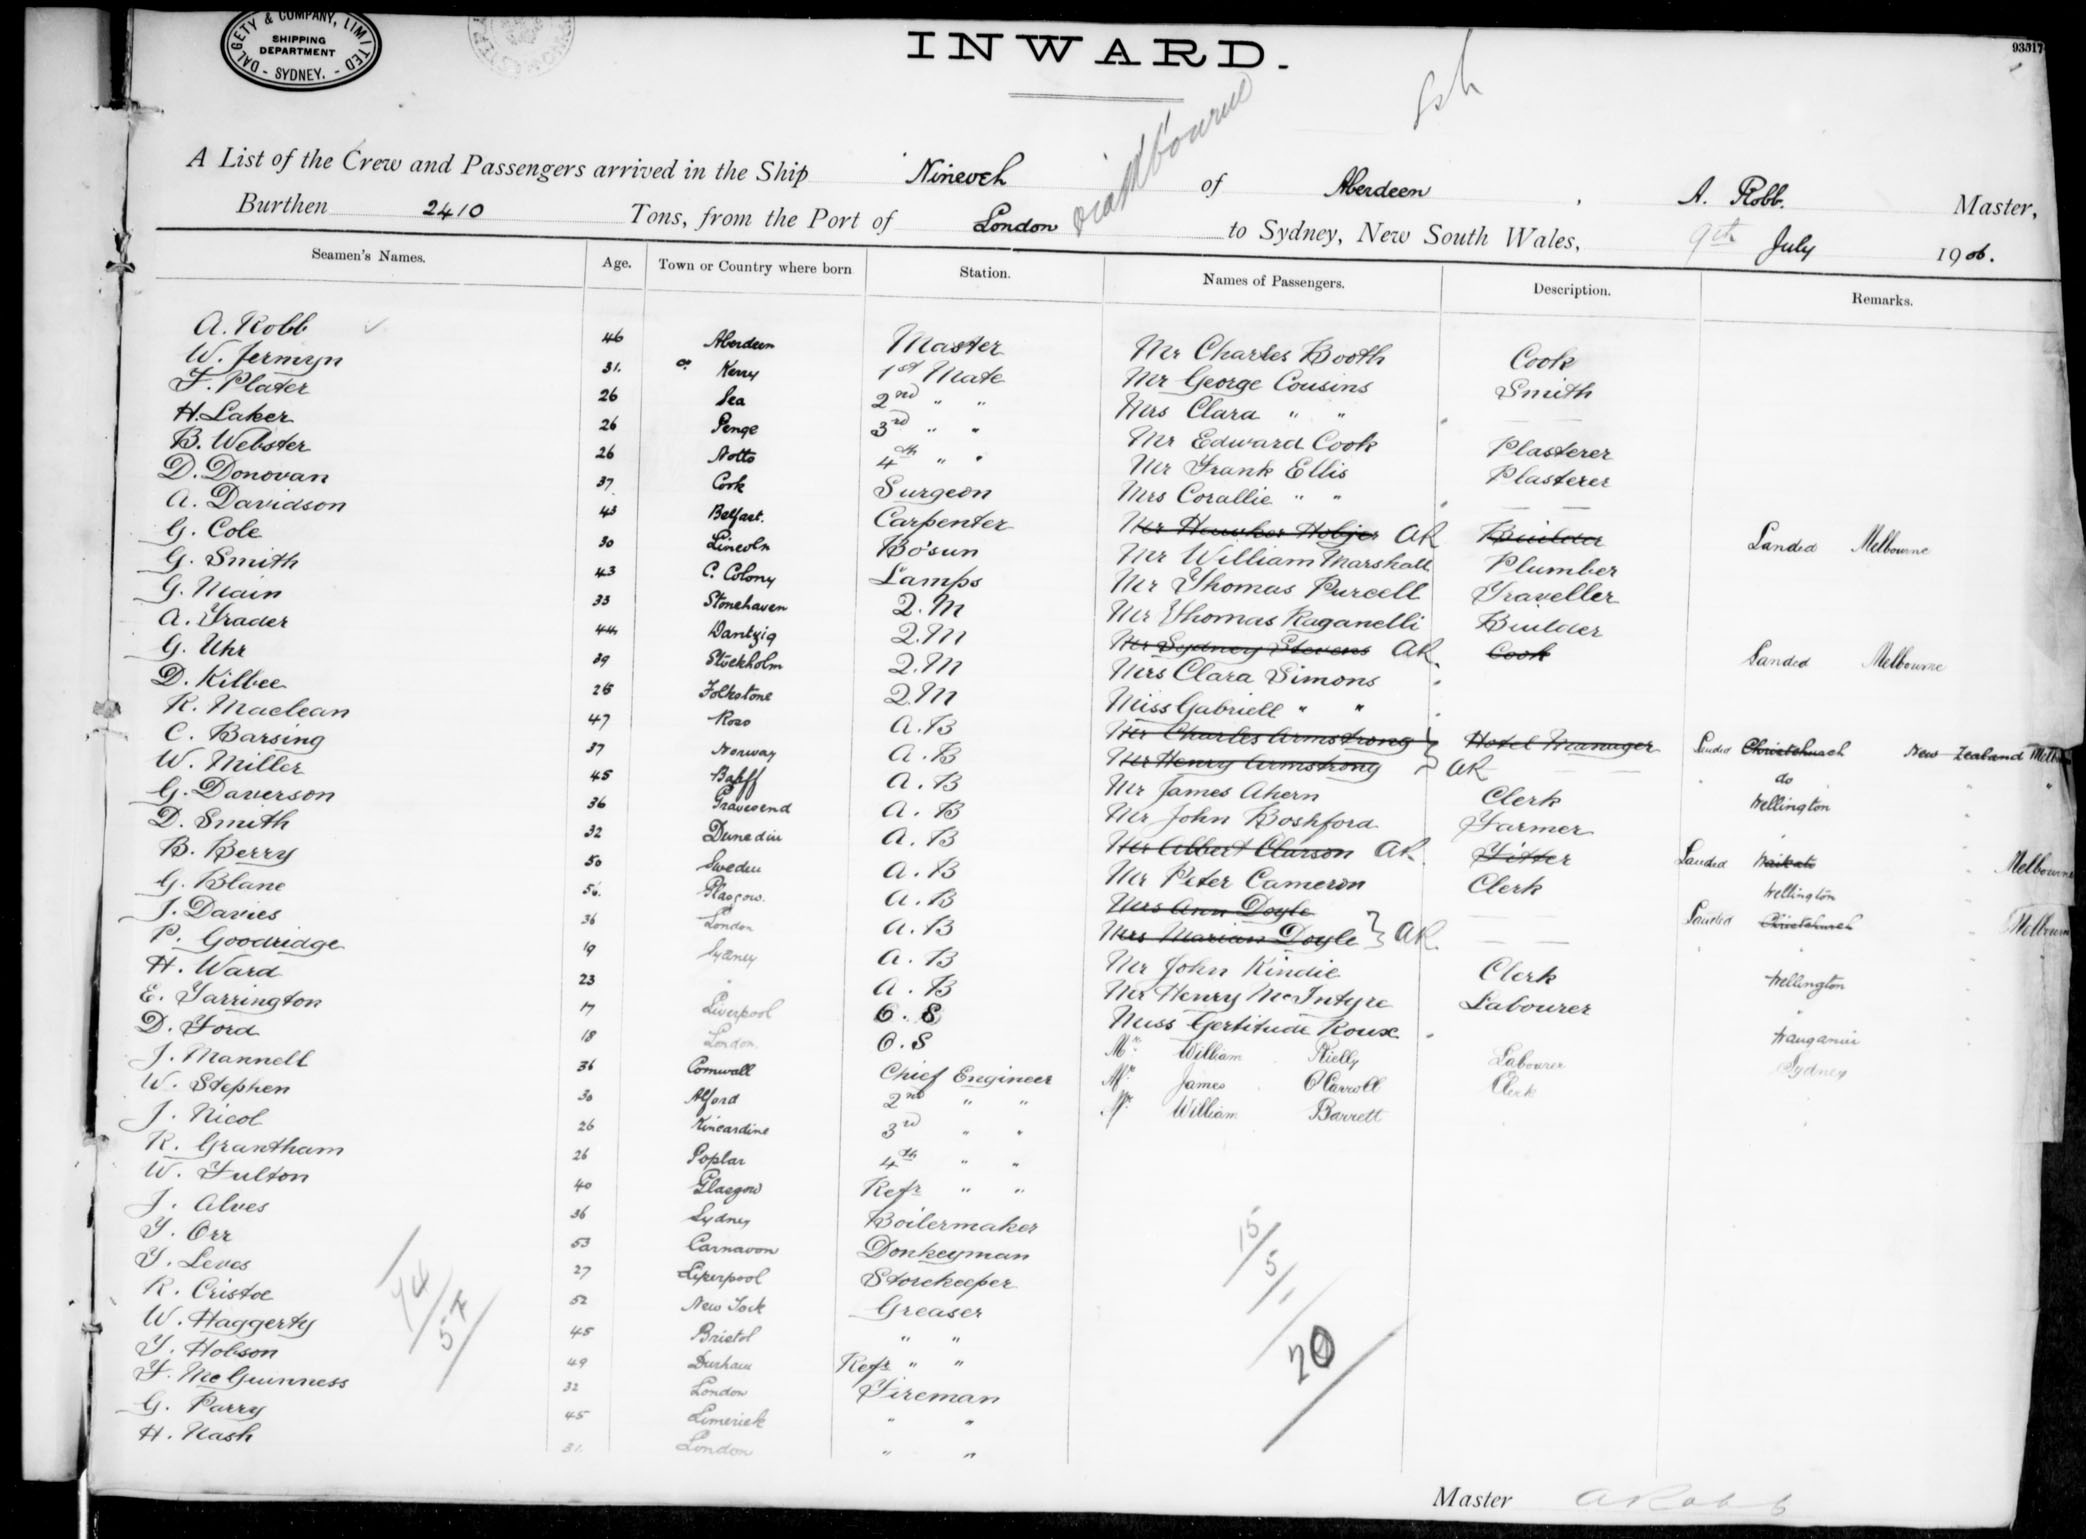 DALGETY & COMPANY, LIMITED
SHIPPING
DEPARTMENT
- SYDNEY. -
INWARD.
93017
A List of the Crew and Passengers arrived in the Ship Nineveh of Aberdeen, A. Robb. Master,
Burthen 2410 Tons, from the Port of London via Melbourne to Sydney, New South Wales, 9th July 1906.
Seamen's Names. Age. Town or Country where born Station. Names of Passengers. Description. Remarks.
A. Robb 46 Aberdeen Master Mr Charles Booth Cook
W. Jermyn 31. Co. Kerry 1st Mate Mr George Cousins Smith
F. Plater 26 Sea 2nd " " Mrs Clara " "
H. Laker 26 Penge 3rd " " Mr Edward Cook Plasterer
B. Webster 26 Notts 4th " " Mr Frank Ellis Plasterer
D. Donovan 37 Cork Surgeon Mrs Corallie " "
A. Davidson 43 Belfast. Carpenter Mr Hawker AR Builder Landed Melbourne
G. Cole 30 Lincoln Bo'sun Mr William Marshall Plumber
G. Smith 43 C. Colony Lamps Mr Thomas Purcell Traveller
G. Main 33 Stonehaven Q.M Mr Thomas Raganelli Builder
A. Trader 44 Dantzig Q.M Mr Sydney Stevens AR. Cook Landed Melbourne
G. Uhr 39 Stockholm Q.M Mrs Clara Simons
D. Kilbee 26 Folkstone Q.M Miss Gabriell " "
R. Maclean 47 Ross A.B Mr Charles Armstrong Hotel Manager Landed Christchurch New Zealand
C. Barsing 37 Norway A.B Mr Henry Armstrong AR do "
W. Miller 45 Banff A.B Mr James Ahern Clerk Wellington
G. Daverson 36 Gravesend A.B Mr John Boshford Farmer
D. Smith 32 Dunedin A.B Mr Albert Clarson AR. Fitter Landed Waikato Melbourne
B. Berry 50 Sweden A.B Mr Peter Cameron Clerk Wellington
G. Blane 56. Glasgow. A.B Mrs Ann Doyle Landed Christchurch Melbourne
J. Davies 36 London A.B Mrs Marian Doyle AR.
P. Goodridge 19 Sydney A.B Mr John Kindie Clerk Wellington
H. Ward 23 " A.B Mr Henry McIntyre Labourer "
E. Tarrington 17 Liverpool O.S Miss Gertitude Roux Wanganui
D. Ford 18 London. O.S Mr. William Rielly Labourer Sydney
J. Mannell 36 Cornwall Chief Engineer Mr. James O'Carroll Clerk
W. Stephen 30 Alford 2nd " " Mr. William Barrett
J. Nicol 26 Kincardine 3rd " "
R. Grantham 26 Poplar 4th " "
W. Fulton 40 Glasgow Refr " "
J. Alves 36 Sydney Boilermaker
T. Orr 53 Carnavon Donkeyman
T. Leves 27 Liverpool Storekeeper
R. Cristoe 52 New York Greaser
W. Haggerty 45 Bristol " "
T. Hobson 49 Durham Refr " "
F. McGuinness 32 London Fireman
G. Parry 45 Limerick " "
H. Nash 31. London " "
74/57
15/5/
20
Master A Robb